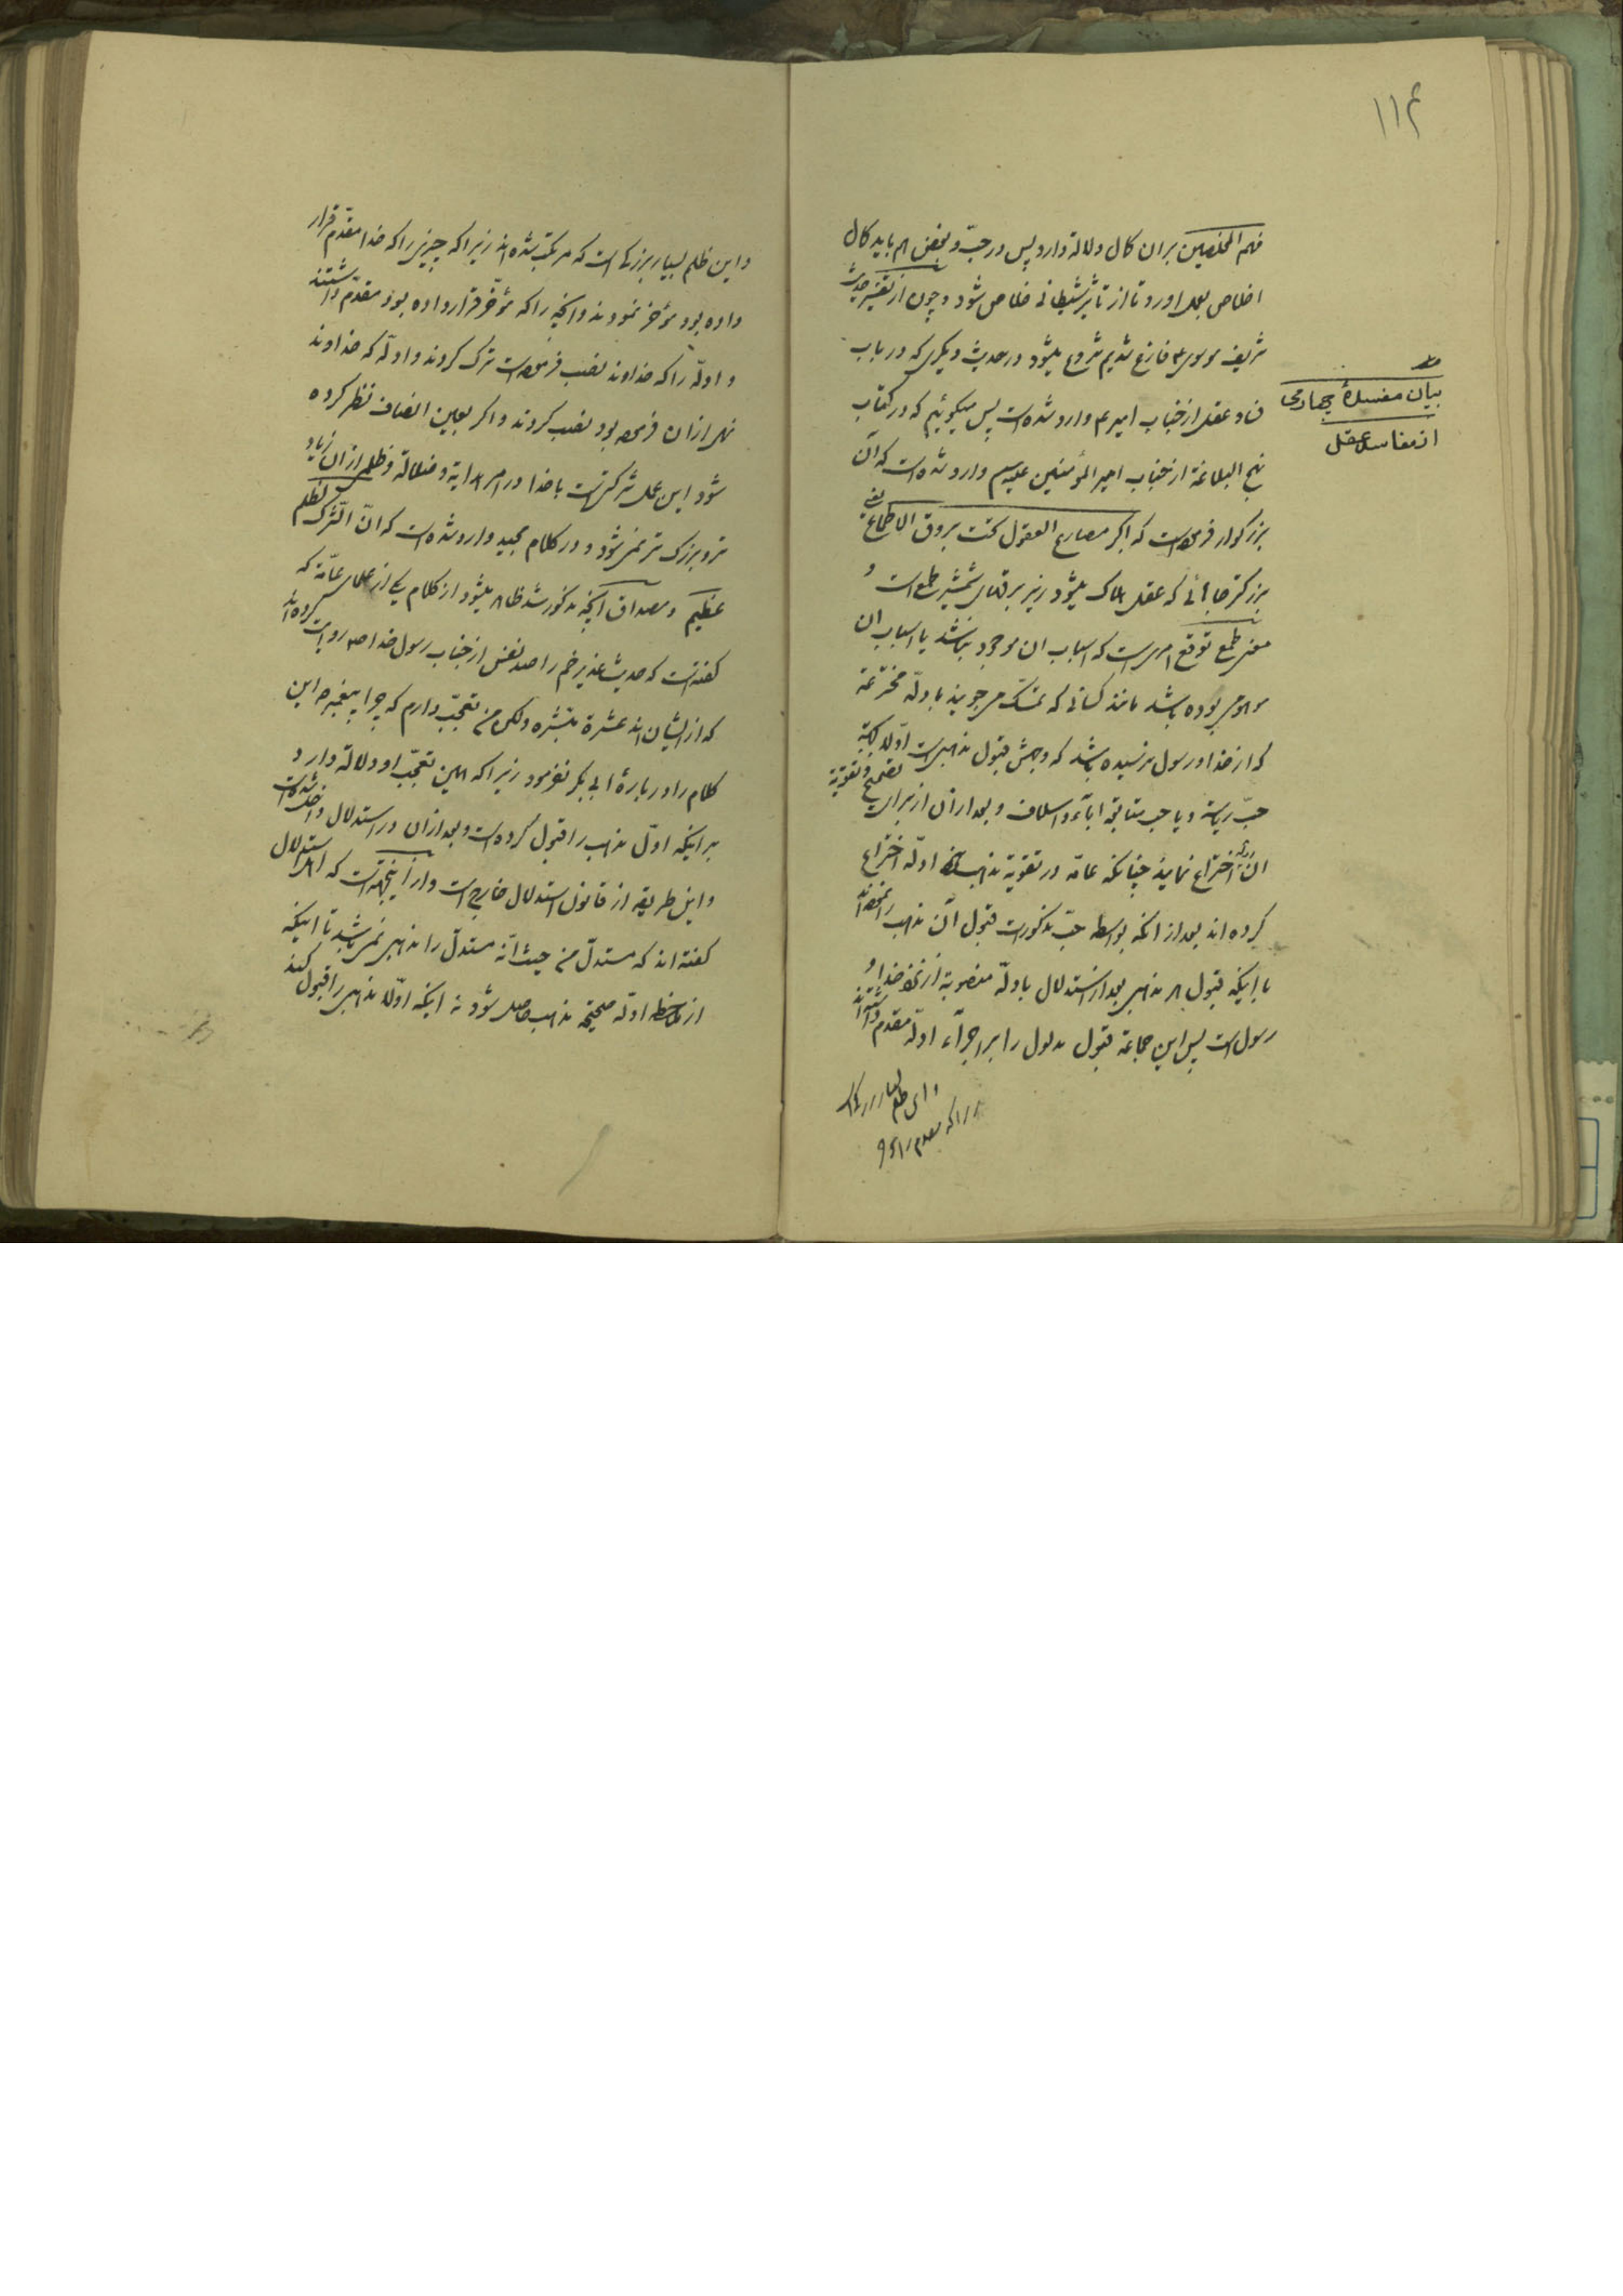 ۱۱۴
منهم المخلصین بر ان کمال دلالة دارد پس در حبّ و بغض هم باید کمال
اخلاص بعمل اورد تا از تأثیر شیطانی خلاص شود و چون از تفسیر حدیث
شریف موسوی ع فارغ شدیم شروع میشود در حدیث دیگری که در باب
بیان مفسدهٔ چهارمی
از مفاسد عقل
فساد عقل از جناب امیر ع وارد شده است پس میگوئیم که در کتاب
نهج البلاغة از جناب امیر المؤمنین علیه سم وارد شده است که آن
بزرگوار فرموده است که اکثر مصارع العقول تحت بروق الاطماع یعنی
بزرگتر جاهائی که عقل هلاک میشود زیر برقهای شمشیر طمع است و
معنی طمع توقع امری است که اسباب ان موجود نباشد یا اسباب ان
موهومی بوده باشد مانند کسانی که تمسّک می جویند بادلّه مخترعة
که از خدا و رسول نرسیده باشد که وجهش قبول مذهبی است اوّلا بجهة
حبّ ریاسة و یا حب متابعة اباء و اسلاف و بعد از ان از برای تصحیح و تقویة
ان ادلّه اختراع نمایند چنانکه عامّه در تقویة مذهبشان ادلّه اختراع
کرده اند بعد از انکه بواسطه حبّ مذکور است قبول آن مذهب را نموده اند
با اینکه قبول هر مذهبی بعد از استدلال بادلّه منصوبة از نزد خدا و
رسول است پس این جماعة قبول مدلول را بر اجراء ادلّه مقدم داشته اند
و این ظلم بسیار بزرگ است که مرتکب شده اند زیرا که چیزی را که خدا مقدّم قرار
داده بود مؤخر نمودند و انچه را که مؤخّر قرار داده بود مقدّم داشتند
و ادلّه را که خداوند نصب فرموده است ترک کردند و ادلّه که خداوند
نهی از ان فرموده بود نصب کردند و اگر بعین انصاف نظر کرده
شود این عمل شرکتی است با خدا در امر هدایة و ضلالة و ظلمی از ان زیاد
تر و بزرگ تر نمی شود و در کلام مجید وارد شده است که انّ الشّرک لظلم
عظیم و مصداق آنچه مذکور شد ظاهر میشود از کلام یکی از علمای عامّه که
گفته است که حدیث غدیر خم را صد نفس از جناب رسول خدا ص روایت کرده اند
که از ایشان اند عشرة مبشّره ولکن من تعجّب دارم که چرا پیغمبر ص این
کلام را در بارهٔ ابی بکر نفرمود زیرا که همین تعجّب او دلالة دارد
بر اینکه اوّل مذهب را قبول کرده است و بعد از ان در استدلال داخل شده است
و این طریقه از قانون استدلال خارج است و از اینجهة است که اهل استدلال
گفته اند که مستدلّ من حیث انّه مستدلّ را مذهبی نمی باشد تا اینکه
از ملاحظه ادلّه صحیحة مذهب حاصل شود نه اینکه اوّلا مذهبی را قبول کند